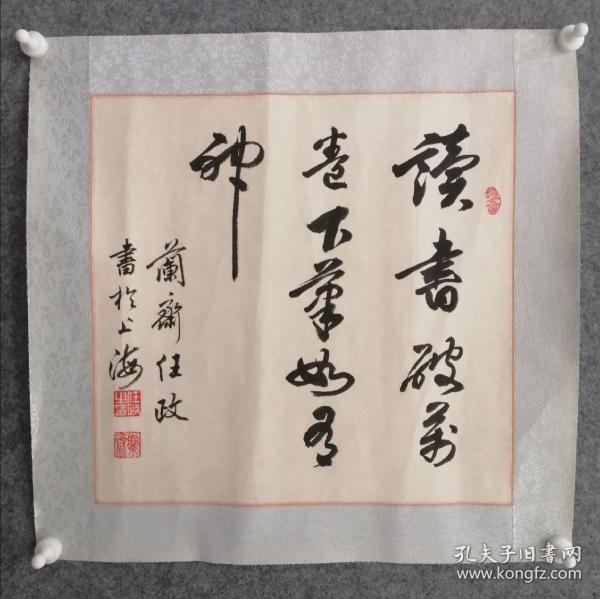 讀書破萬
卷下筆如有
神
蘭齋任政
書於上海
孔夫子旧书网
www.kongfz.com